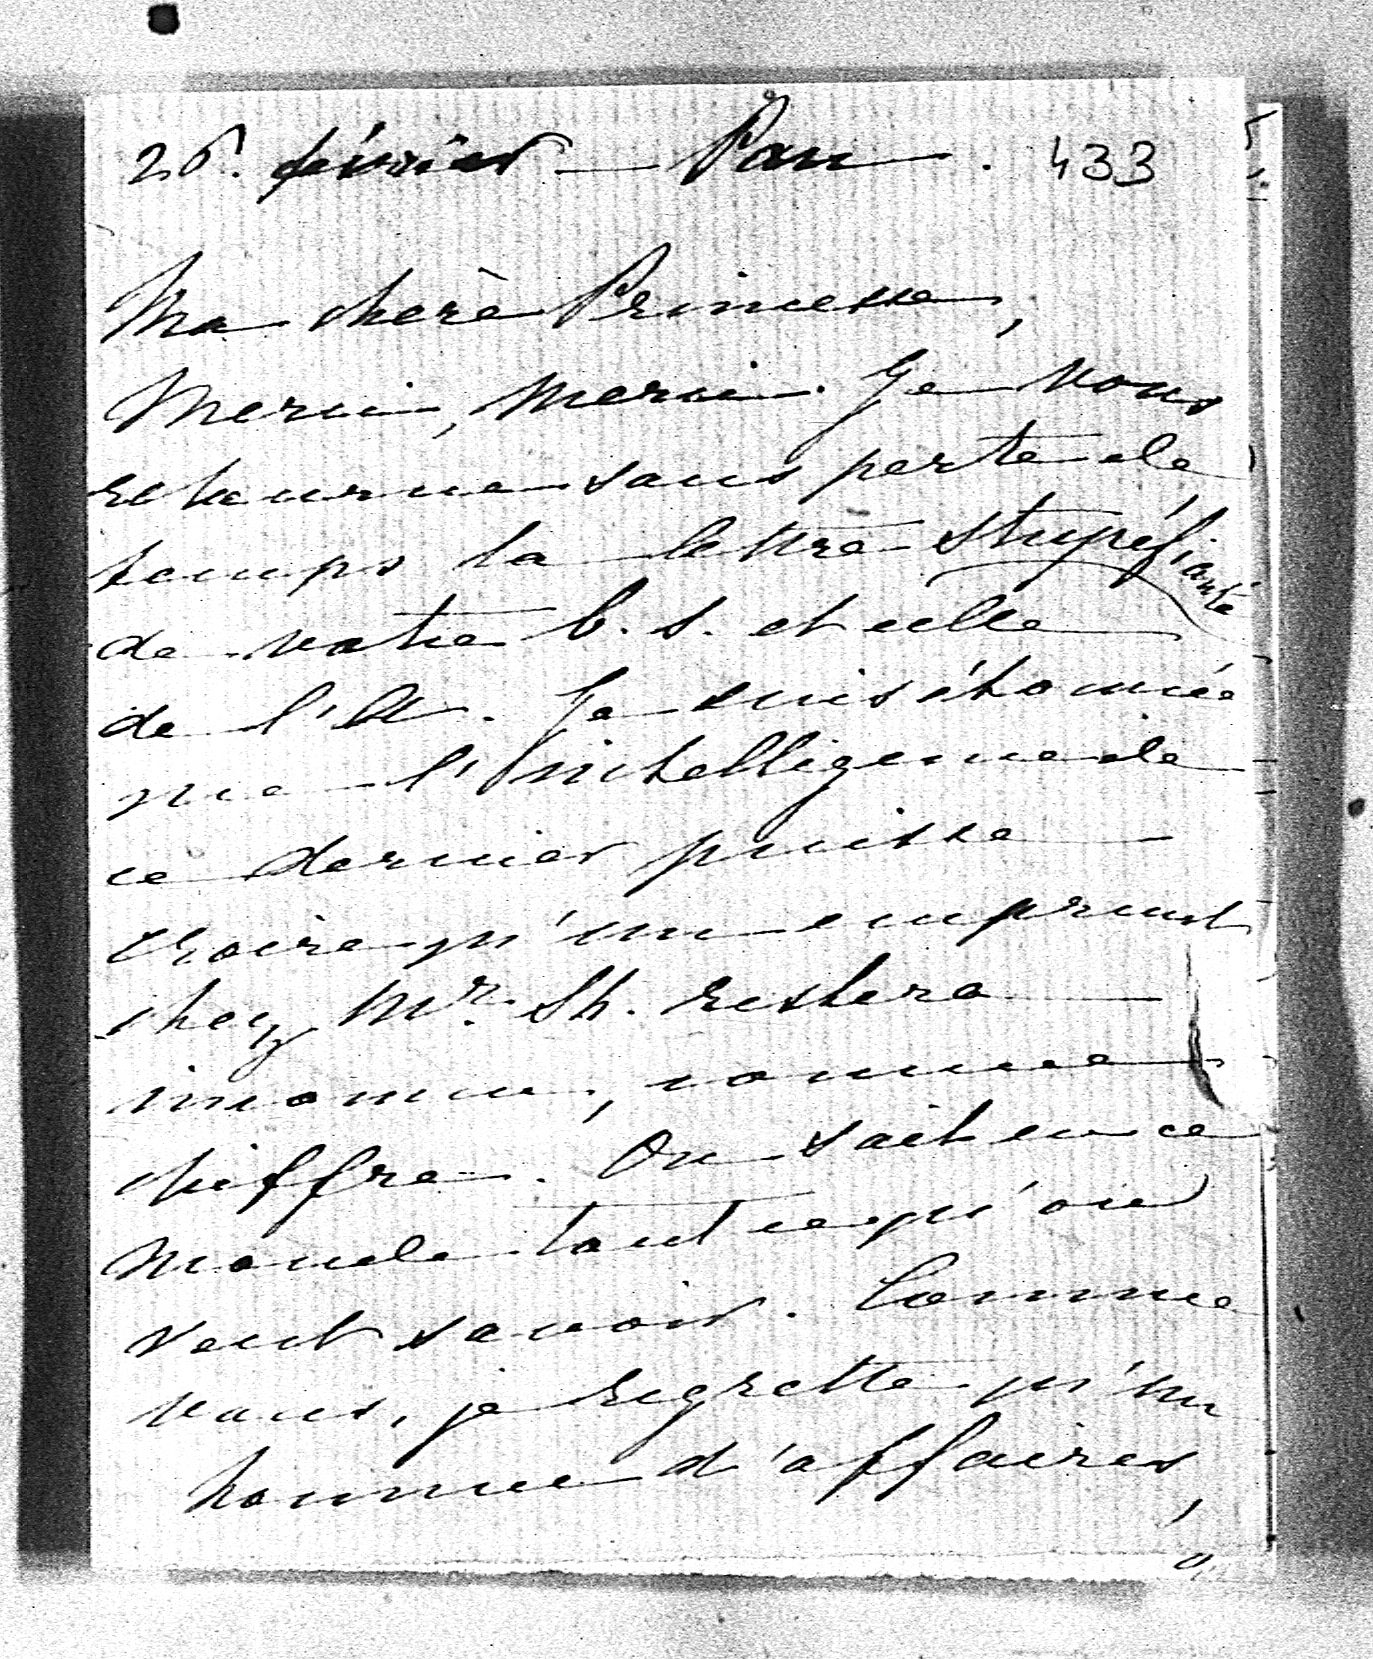 26. février — Pau. 433
Ma chère Princesse,
Merci, merci. Je vous
retourne sans perte de
temps la lettre stupéfiante
de votre b. s. et celle
de l'A. Je suis étonnée
que l'intelligence de
ce dernier puisse
croire qu'un emprunt
chez Mr. Sh. restera
inconnu, comme
chiffre. On sait en ce
monde tout ce qu'on
veut savoir. Comme
vous, je regrette qu'un
homme d'affaires,